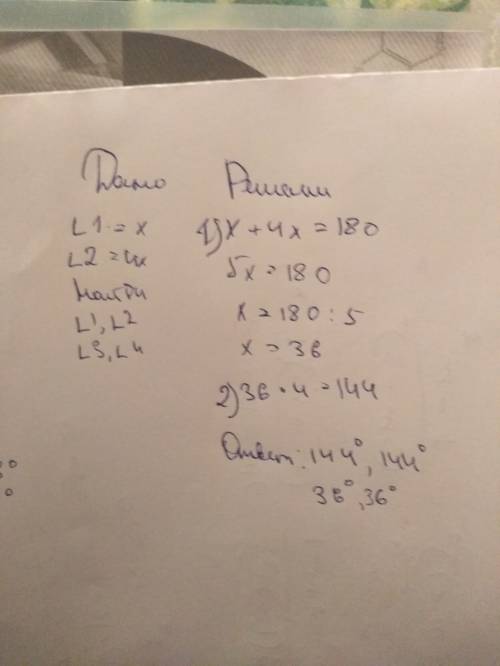 Дано
L1 = x
L2 = 4x
Найти
L1, L2
L3, L4
Решение
1) x + 4x = 180
5x = 180
x = 180 : 5
x = 36
2) 36 • 4 = 144
Ответ: 144°, 144°
36°, 36°